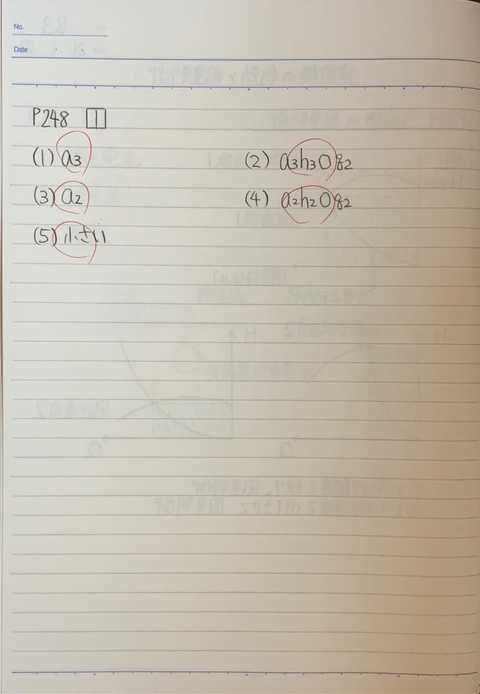 No.
Date
P248 1
(1) a3 (2) a3h3Og2
(3) a2 (4) a2h2Og2
(5) 小さい